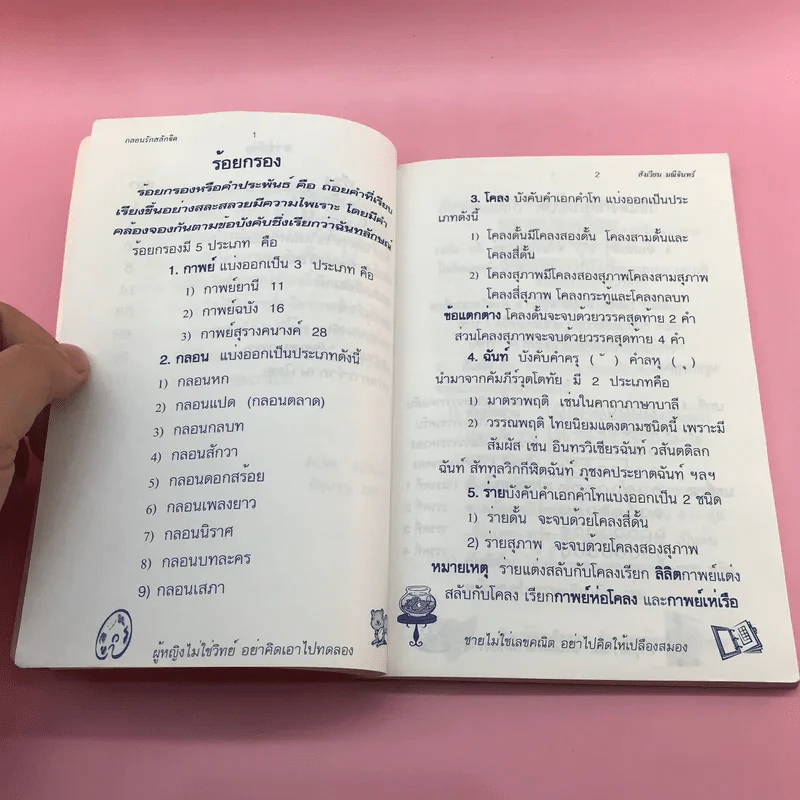 กลอนรักสลักจิต 1
ร้อยกรอง
ร้อยกรองหรือคำประพันธ์ คือ ถ้อยคำที่เรียบ
เรียงขึ้นอย่างสละสลวยมีความไพเราะ โดยมีคำ
คล้องจองกันตามข้อบังคับซึ่งเรียกว่าฉันทลักษณ์
ร้อยกรองมี 5 ประเภท คือ
1. กาพย์ แบ่งออกเป็น 3 ประเภท คือ
1) กาพย์ยานี 11
2) กาพย์ฉบัง 16
3) กาพย์สุรางคนางค์ 28
2. กลอน แบ่งออกเป็นประเภทดังนี้
1) กลอนหก
2) กลอนแปด (กลอนตลาด)
3) กลอนกลบท
4) กลอนสักวา
5) กลอนดอกสร้อย
6) กลอนเพลงยาว
7) กลอนนิราศ
8) กลอนบทละคร
9) กลอนเสภา
ผู้หญิงไม่ใช่วิทย์ อย่าคิดเอาไปทดลอง
2 สังเวียน มณีจันทร์
3. โคลง บังคับคำเอกคำโท แบ่งออกเป็นประ
เภทดังนี้
1) โคลงดั้นมีโคลงสองดั้น โคลงสามดั้นและ
โคลงสี่ดั้น
2) โคลงสุภาพมีโคลงสองสุภาพโคลงสามสุภาพ
โคลงสี่สุภาพ โคลงกระทู้และโคลงกลบท
ข้อแตกต่าง โคลงดั้นจะจบด้วยวรรคสุดท้าย 2 คำ
ส่วนโคลงสุภาพจะจบด้วยวรรคสุดท้าย 4 คำ
4. ฉันท์ บังคับคำครุ ( ั ) คำลหุ ( ุ )
นำมาจากคัมภีร์วุตโตทัย มี 2 ประเภทคือ
1) มาตราพฤติ เช่นในคาถาภาษาบาลี
2) วรรณพฤติ ไทยนิยมแต่งตามชนิดนี้ เพราะมี
สัมผัส เช่น อินทรวิเชียรฉันท์ วสันตดิลก
ฉันท์ สัททุลวิกกีฬิตฉันท์ ภุชงคประยาตฉันท์ ฯลฯ
5. ร่ายบังคับคำเอกคำโทแบ่งออกเป็น 2 ชนิด
1) ร่ายดั้น จะจบด้วยโคลงสี่ดั้น
2) ร่ายสุภาพ จะจบด้วยโคลงสองสุภาพ
หมายเหตุ ร่ายแต่งสลับกับโคลงเรียก ลิลิตกาพย์แต่ง
สลับกับโคลง เรียกกาพย์ห่อโคลง และกาพย์เห่เรือ
ชายไม่ใช่เลขคณิต อย่าไปคิดให้เปลืองสมอง